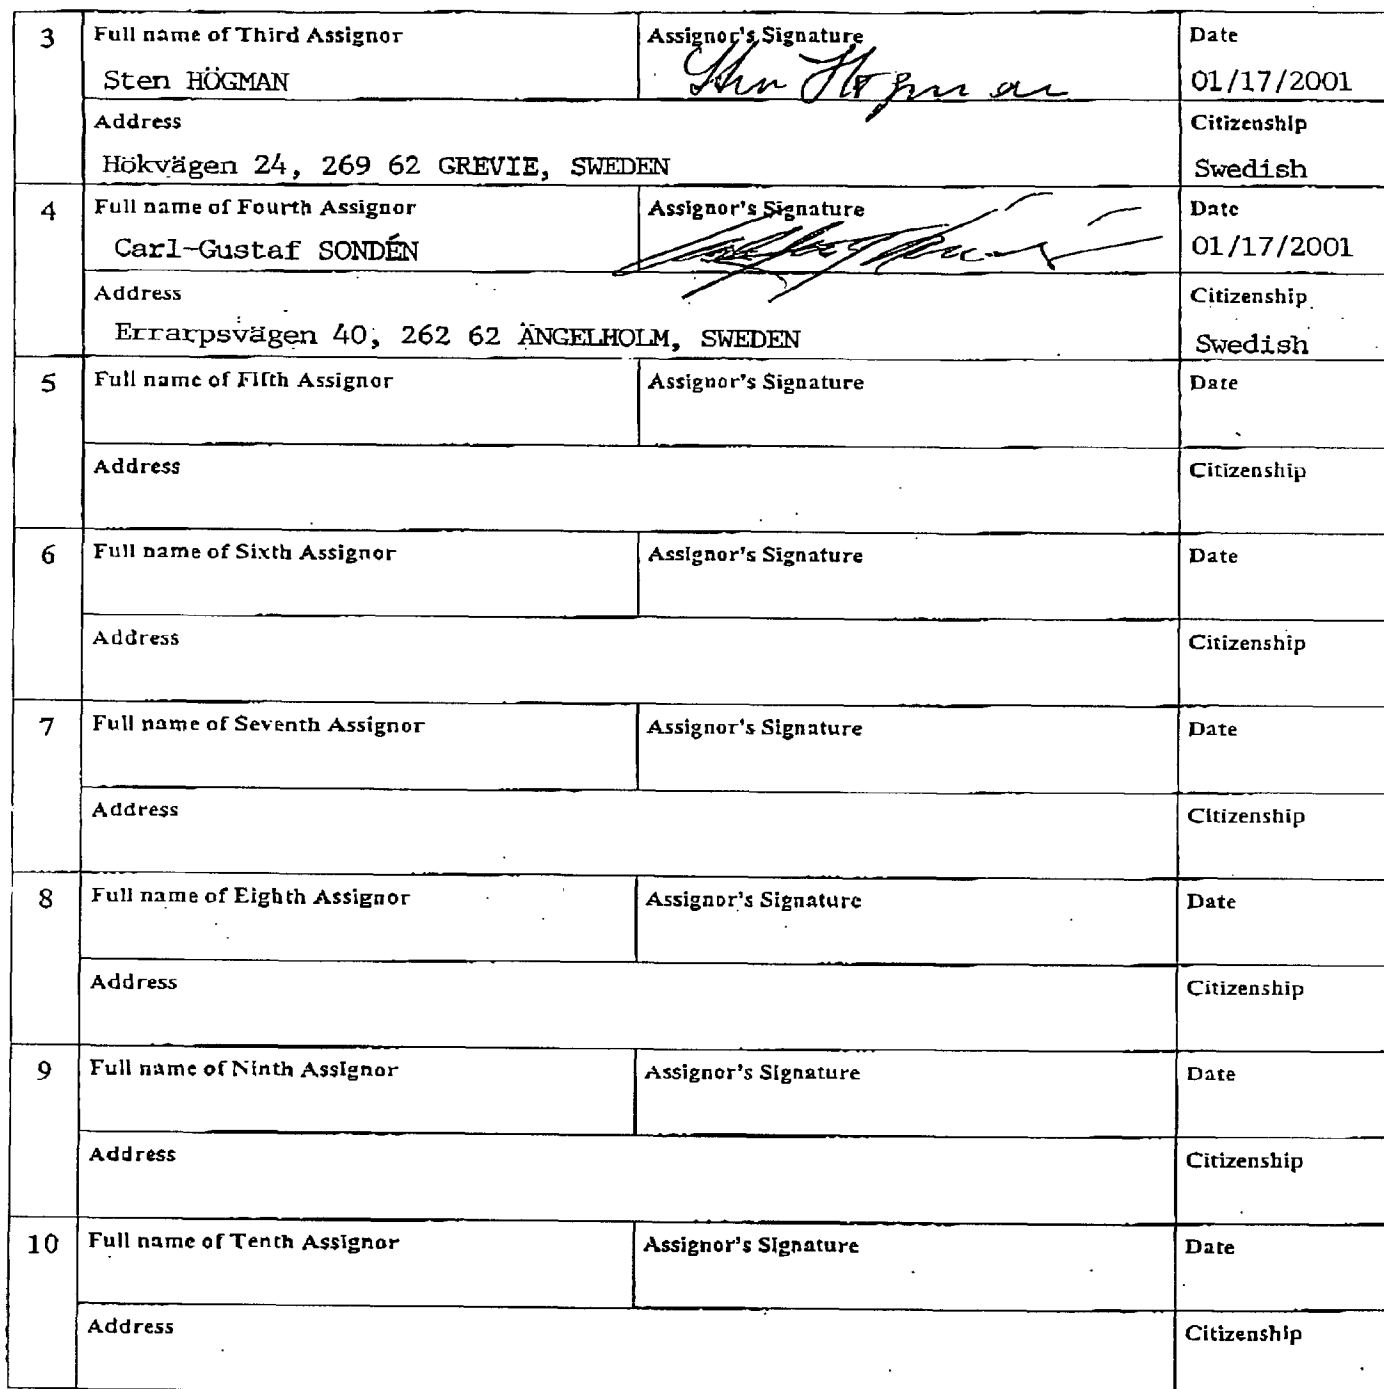 3 Full name of Third Assignor Assignor's Signature Date
Sten HÖGMAN Sten Hogman 01/17/2001
Address Citizenship
Hökvägen 24, 269 62 GREVIE, SWEDEN Swedish
4 Full name of Fourth Assignor Assignor's Signature Date
Carl-Gustaf SONDÉN 01/17/2001
Address Citizenship
Errarpsvägen 40, 262 62 ÄNGELHOLM, SWEDEN Swedish
5 Full name of Fifth Assignor Assignor's Signature Date
Address Citizenship
6 Full name of Sixth Assignor Assignor's Signature Date
Address Citizenship
7 Full name of Seventh Assignor Assignor's Signature Date
Address Citizenship
8 Full name of Eighth Assignor Assignor's Signature Date
Address Citizenship
9 Full name of Ninth Assignor Assignor's Signature Date
Address Citizenship
10 Full name of Tenth Assignor Assignor's Signature Date
Address Citizenship